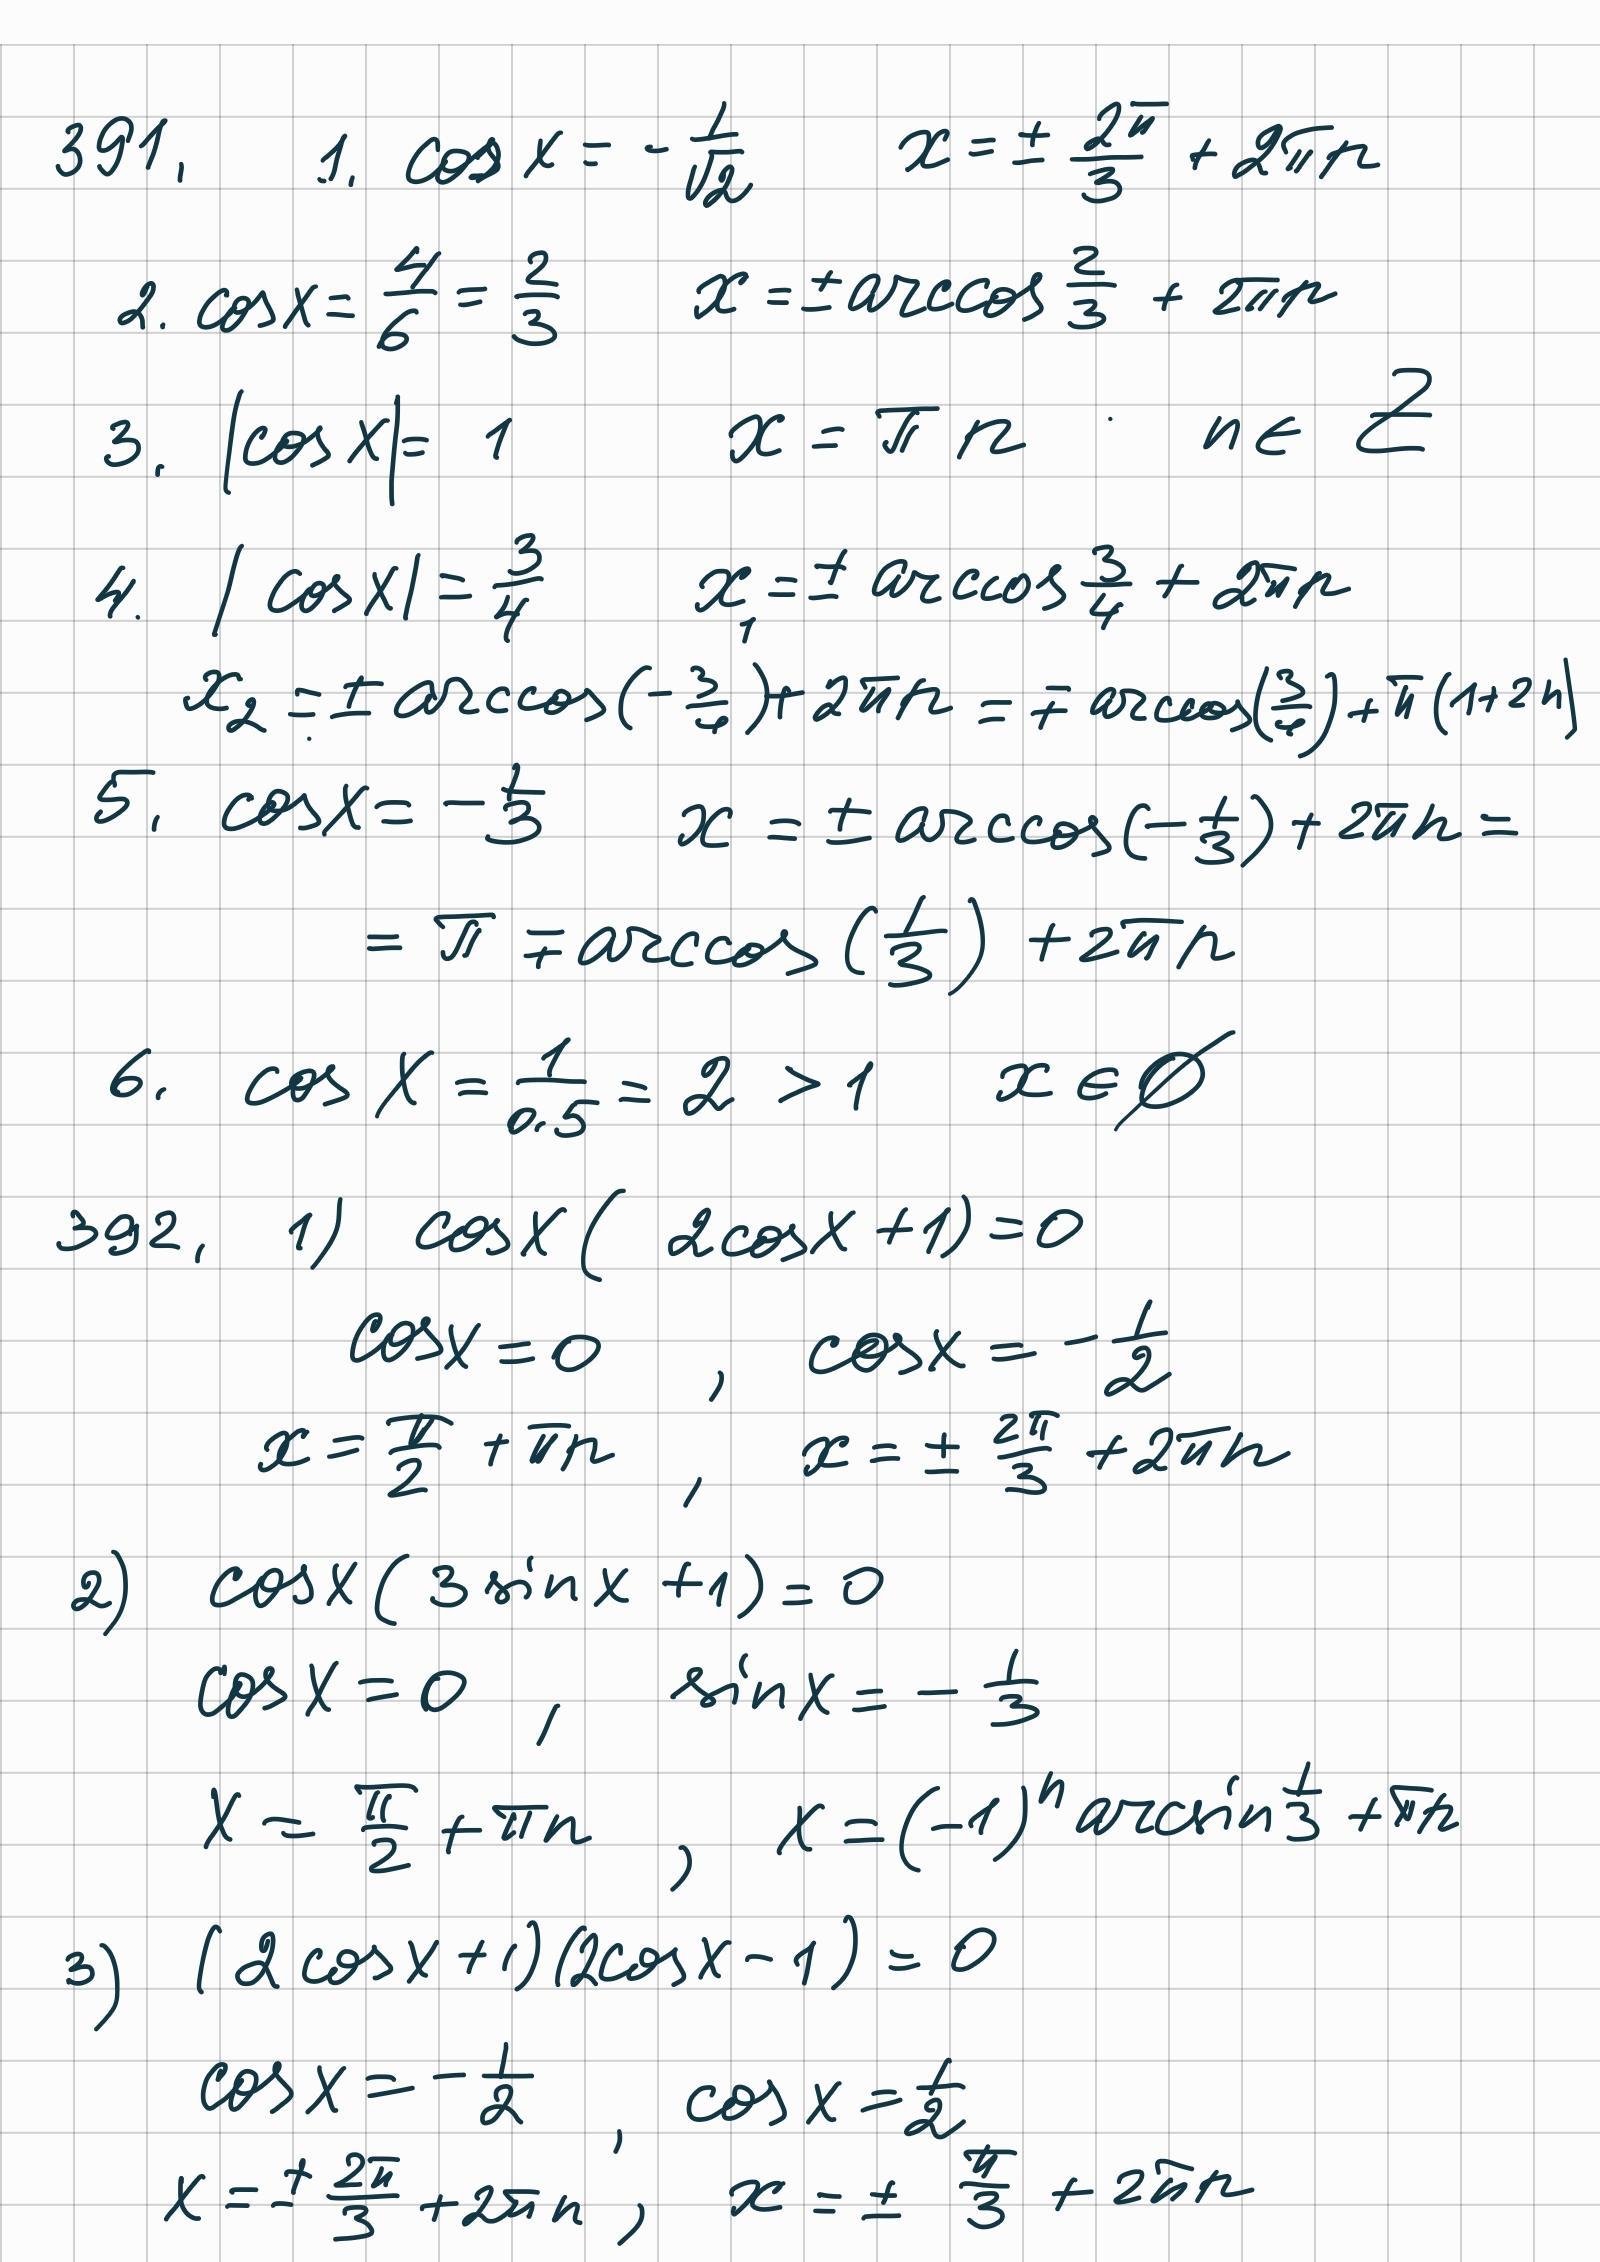 391. 1. cos x = - 1/√2 x = ± 2π/3 + 2πn
2. cos x = 4/6 = 2/3 x = ± arccos 2/3 + 2πn
3. |cos x| = 1 x = πn n ∈ Z
4. |cos x| = 3/4 x₁ = ± arccos 3/4 + 2πn
x₂ = ± arccos(- 3/4) + 2πn = ∓ arccos(3/4) + π(1+2n)
5. cos x = - 1/3 x = ± arccos(- 1/3) + 2πn =
= π ∓ arccos(1/3) + 2πn
6. cos x = 1/0.5 = 2 > 1 x ∈ ∅
392. 1) cos x (2cos x + 1) = 0
cos x = 0 , cos x = - 1/2
x = π/2 + πn , x = ± 2π/3 + 2πn
2) cos x (3 sin x + 1) = 0
cos x = 0 , sin x = - 1/3
x = π/2 + πn , x = (-1)ⁿ arcsin 1/3 + πn
3) (2 cos x + 1)(2cos x - 1) = 0
cos x = - 1/2 , cos x = 1/2
x = ± 2π/3 + 2πn , x = ± π/3 + 2πn